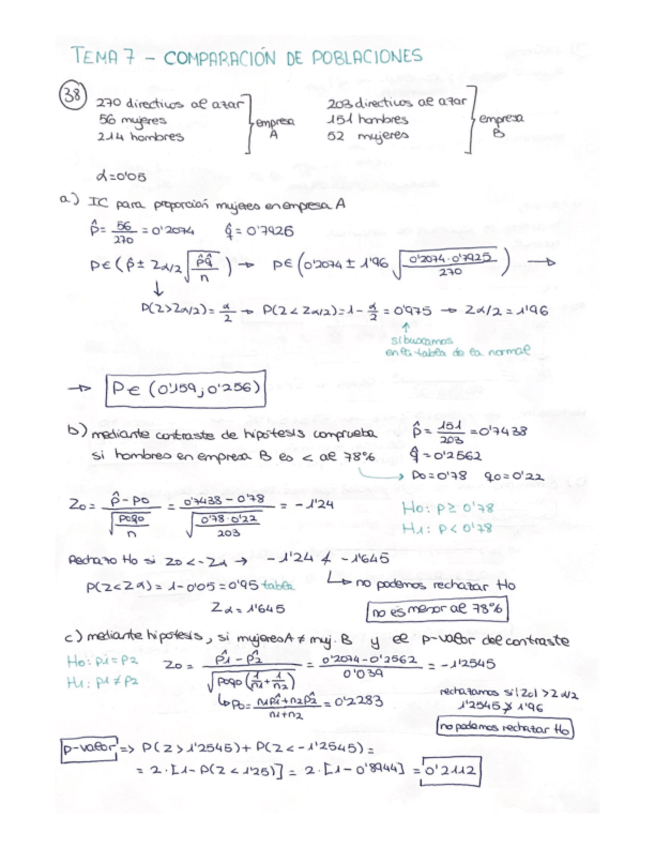 TEMA 7 - COMPARACIÓN DE POBLACIONES
38
270 directivos al azar
56 mujeres
214 hombres
empresa A
203 directivos al azar
151 hombres
52 mujeres
empresa B
α=0'05
a) IC para proporción mujeres en empresa A
p̂ = 56/270 = 0'2074 q̂ = 0'7926
p∈(p̂ ± Zα/2 √(p̂q̂/n)) → p∈(0'2074 ± 1'96 √(0'2074·0'7925/270)) →
↓
P(Z>Zα/2) = α/2 → P(Z<Zα/2) = 1-α/2 = 0'975 → Zα/2 = 1'96
↑
si buscamos
en la tabla de la normal
→ P∈(0'159; 0'256)
b) mediante contraste de hipótesis comprueba
si hombres en empresa B es < al 78%
p̂ = 151/203 = 0'7438
q̂ = 0'2562
→ p0=0'78 q0=0'22
Z0 = (p̂-p0)/√(p0q0/n) = (0'7438-0'78)/√(0'78·0'22/203) = -1'24
H0: p≥0'78
H1: p<0'78
Rechazo H0 si Z0<-Zα → -1'24 ≮ -1'645
↳ no podemos rechazar H0
P(Z<Zα) = 1-0'05 = 0'95 tabla
Zα = 1'645
no es menor al 78%
c) mediante hipótesis, si mujeres A ≠ muj. B y el p-valor del contraste
H0: p1=p2
H1: p1≠p2
Z0 = (p̂1-p̂2)/√(p0q0(1/n1+1/n2)) = (0'2074-0'2562)/0'039 = -1'2545
↳ p0 = (n1p̂1+n2p̂2)/(n1+n2) = 0'2283
rechazamos si |Z0|>Zα/2
1'2545 ≯ 1'96
no podemos rechazar H0
p-valor ⇒ P(Z>1'2545)+P(Z<-1'2545) =
= 2·[1-P(Z<1'25)] = 2·[1-0'8944] = 0'2112